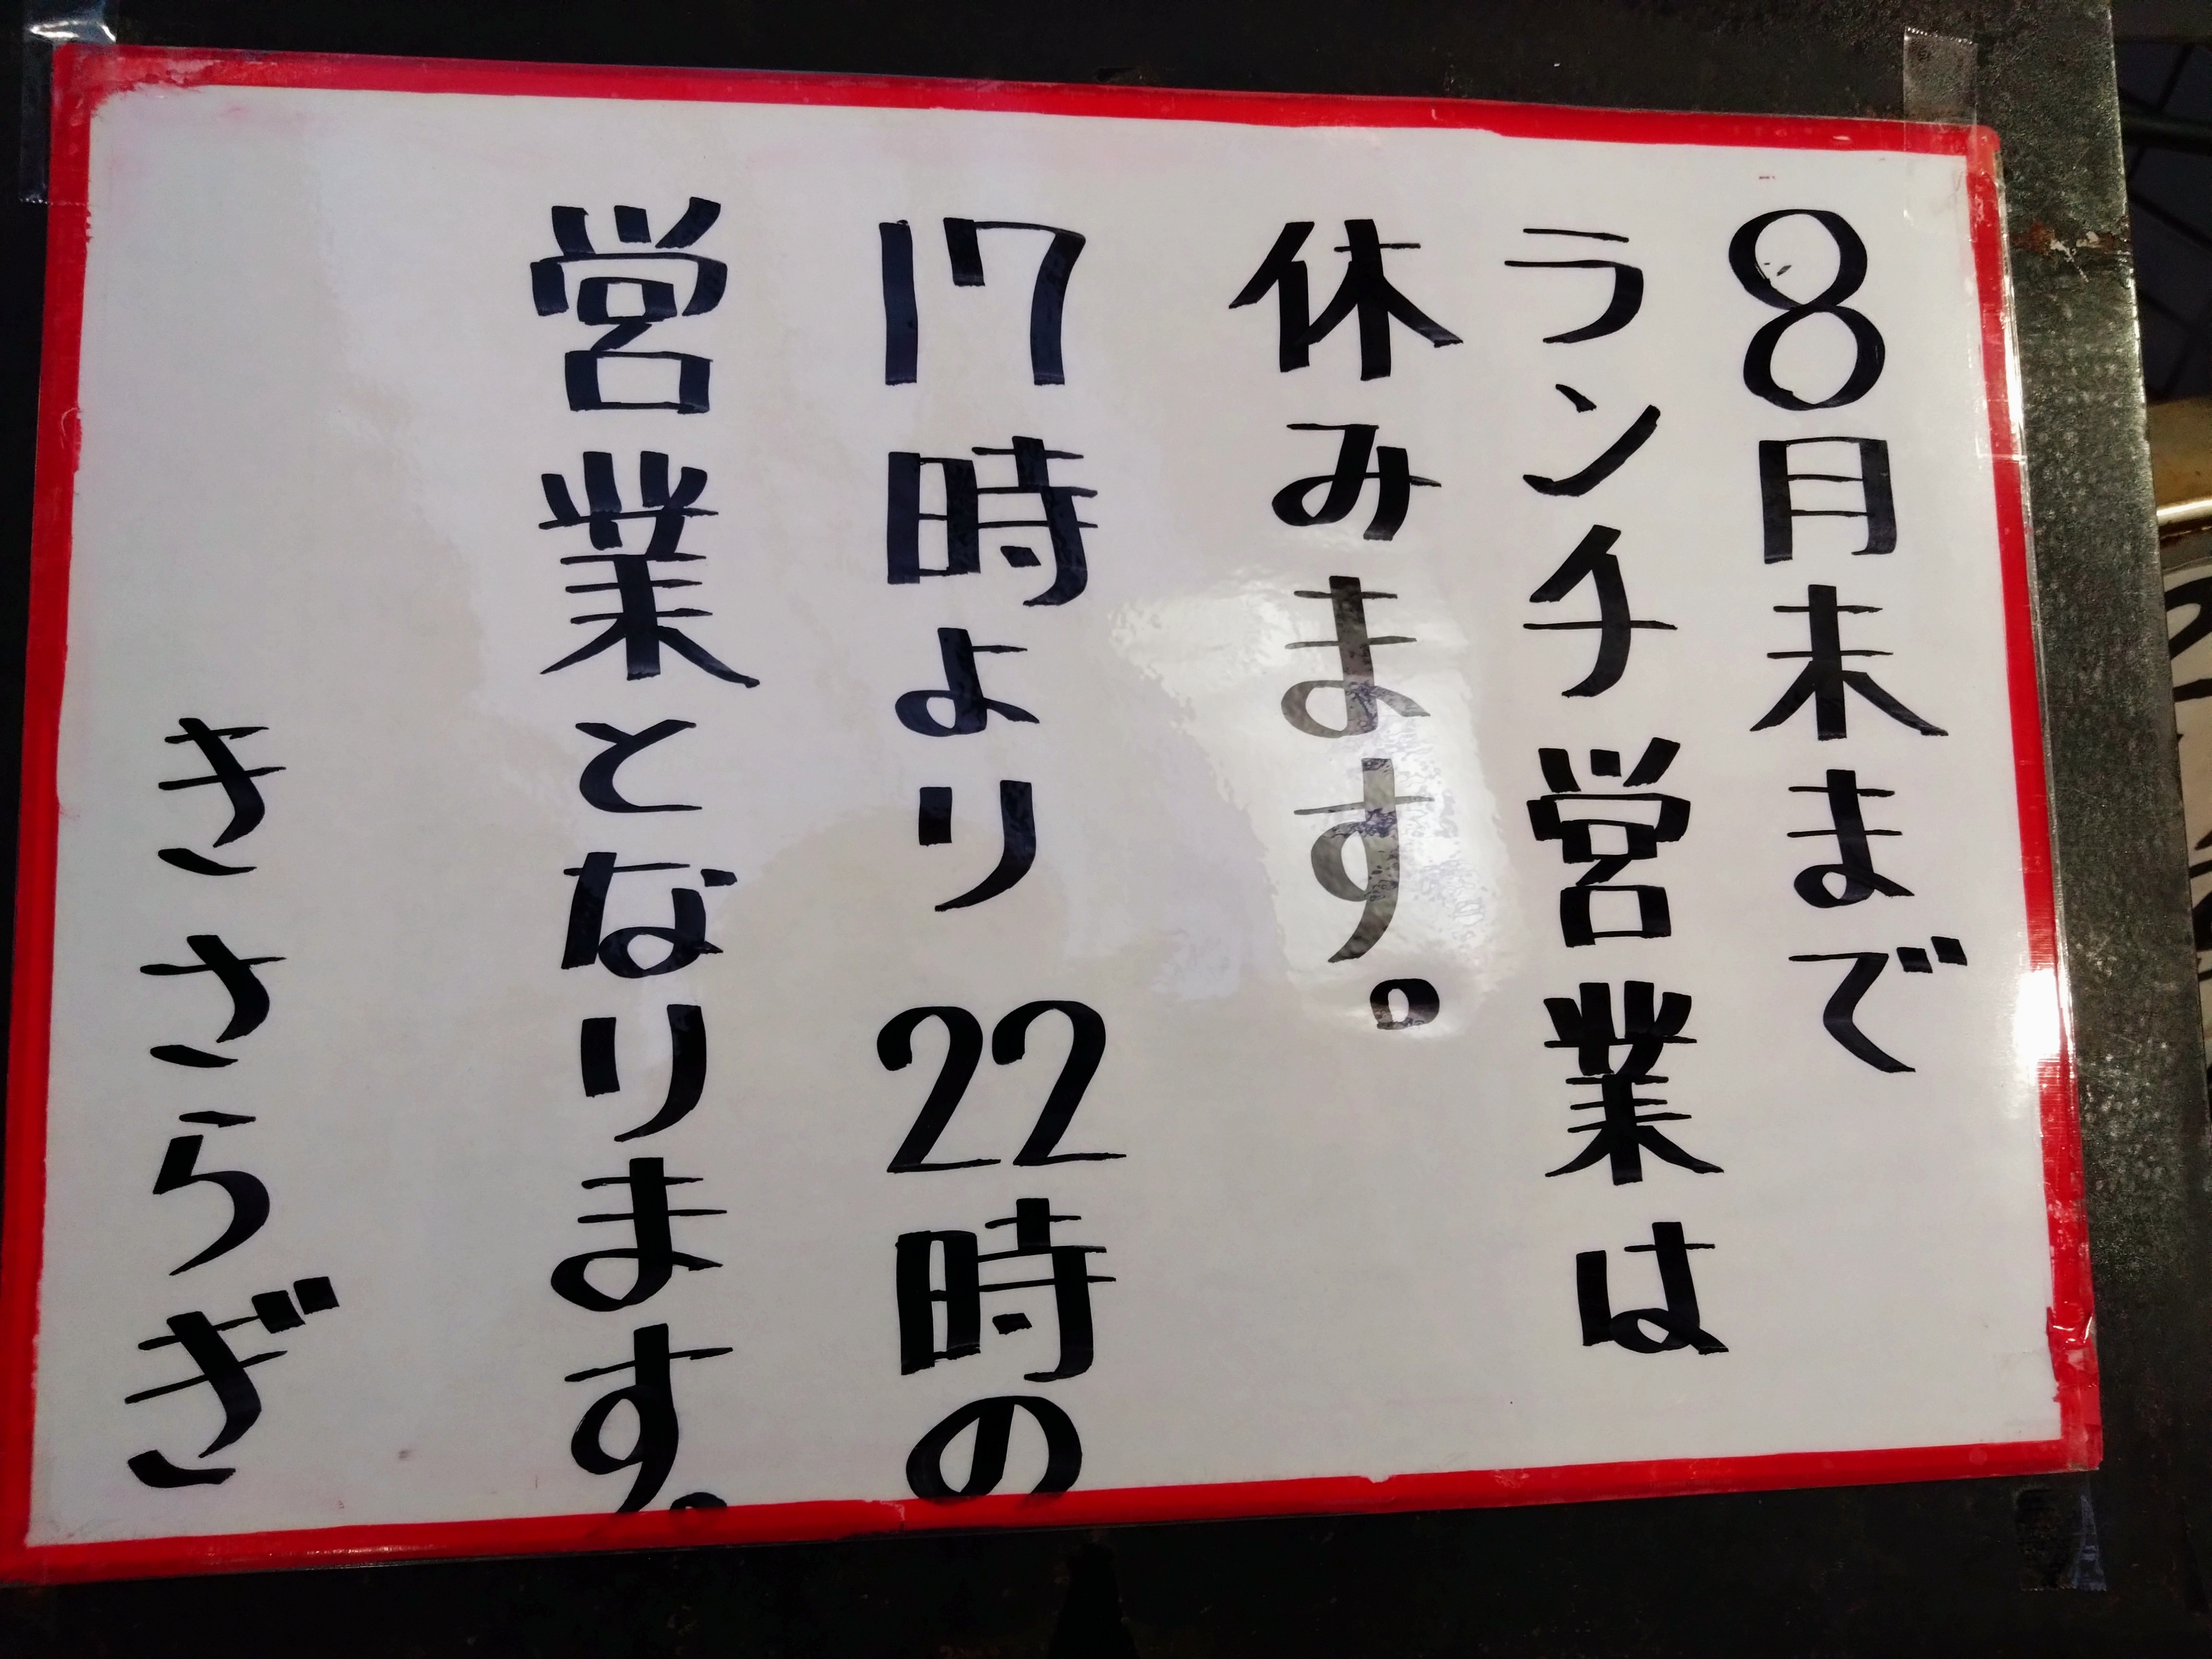 8月末まで
ランチ営業は
休みます。
17時より22時の
営業となります。
きさらぎ